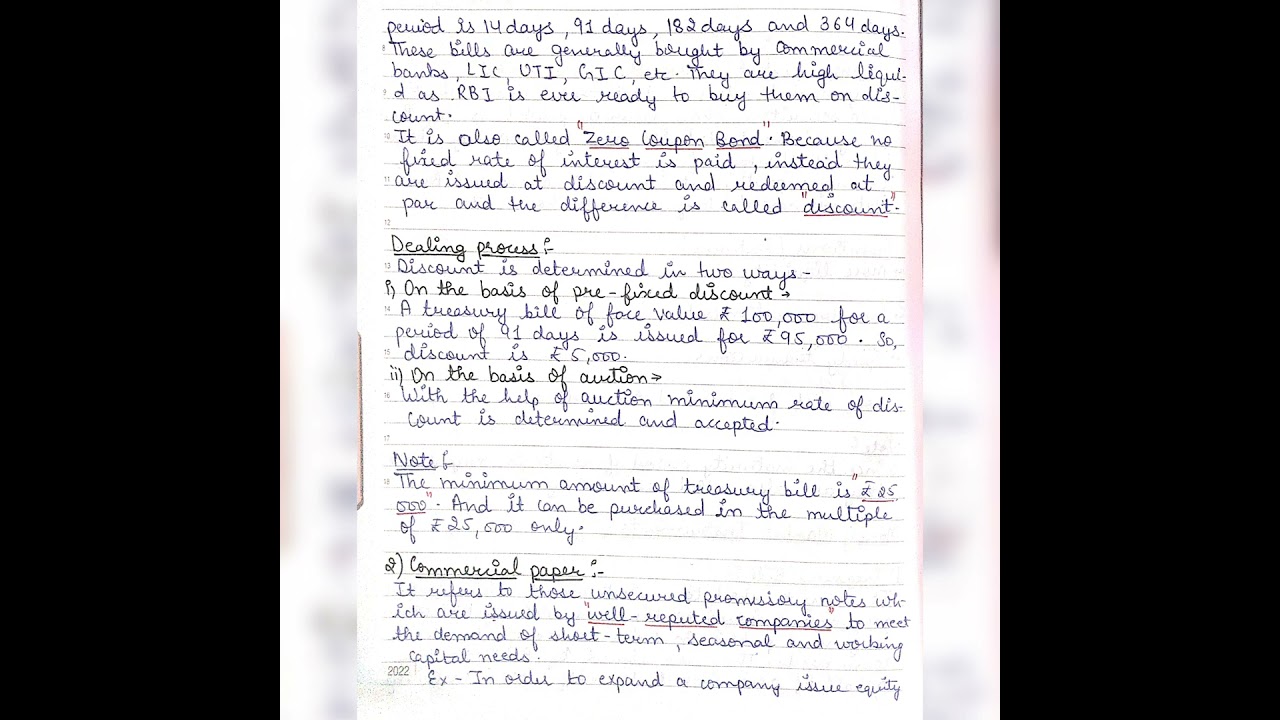 period is 14 days, 91 days, 182 days and 364 days.
These bills are generally bought by commercial
banks, LIC, UTI, GIC, etc. They are high liqui-
9 d as RBI is ever ready to buy them on dis-
count.
10 It is also called "Zero Coupon Bond". Because no
fixed rate of interest is paid, instead they
11 are issued at discount and redeemed at
par and the difference is called "discount".
12
Dealing process:-
13 Discount is determined in two ways-
i) On the basis of pre-fixed discount→
14 A treasury bill of face value ₹ 100,000 for a
period of 91 days is issued for ₹ 95,000. So,
15 discount is ₹ 5,000.
ii) On the basis of auction→
16 With the help of auction minimum rate of dis-
count is determined and accepted.
17
Note:-
18 The minimum amount of treasury bill is "₹ 25,
000". And it can be purchased in the multiple
of ₹ 25,000 only.
2) Commercial paper:-
It refers to those unsecured promissory notes wh-
ich are issued by "well-reputed companies" to meet
the demand of short-term, seasonal and working
capital needs.
2022 Ex - In order to expand a company issue equity